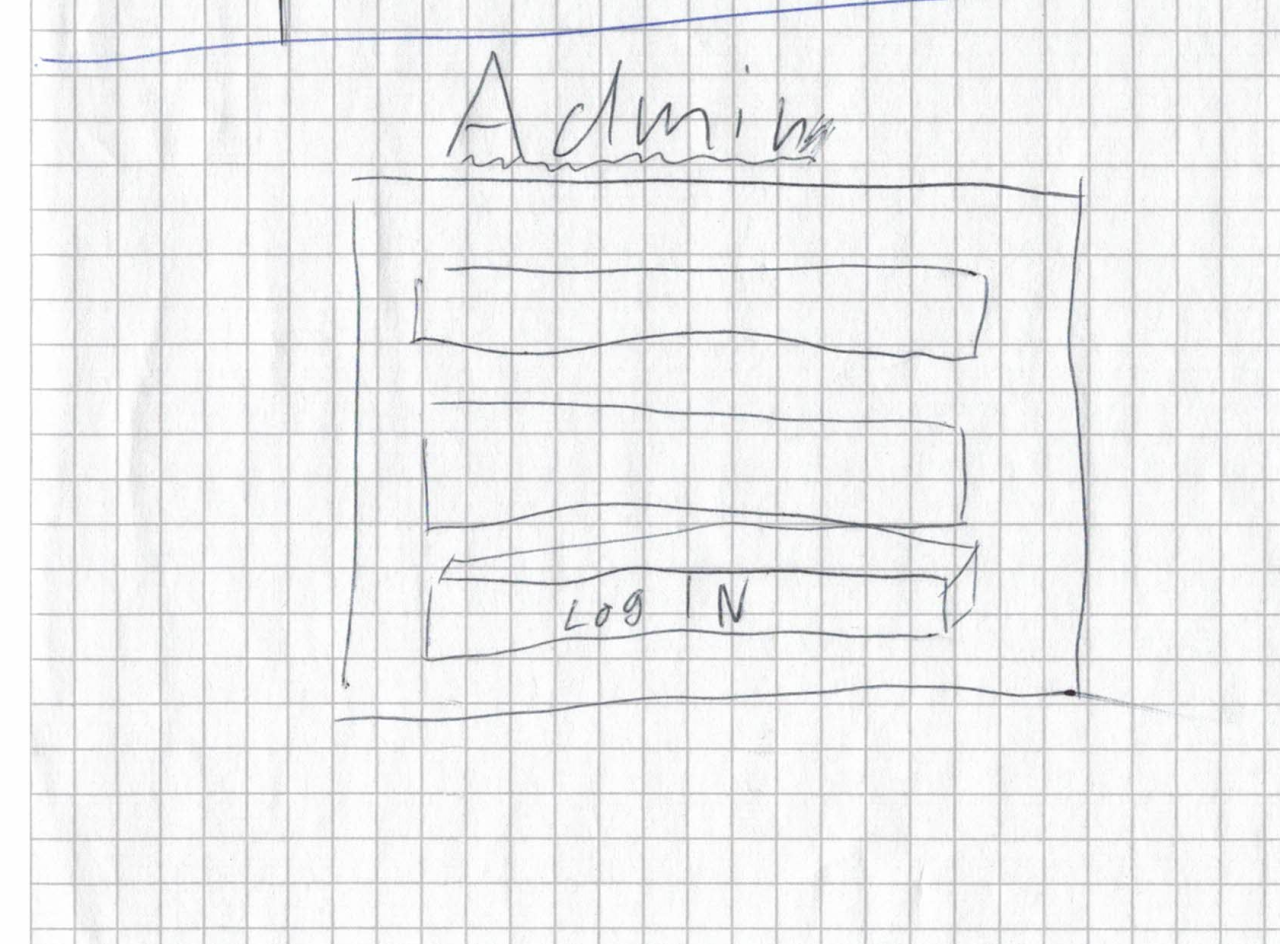 Admin
Log IN